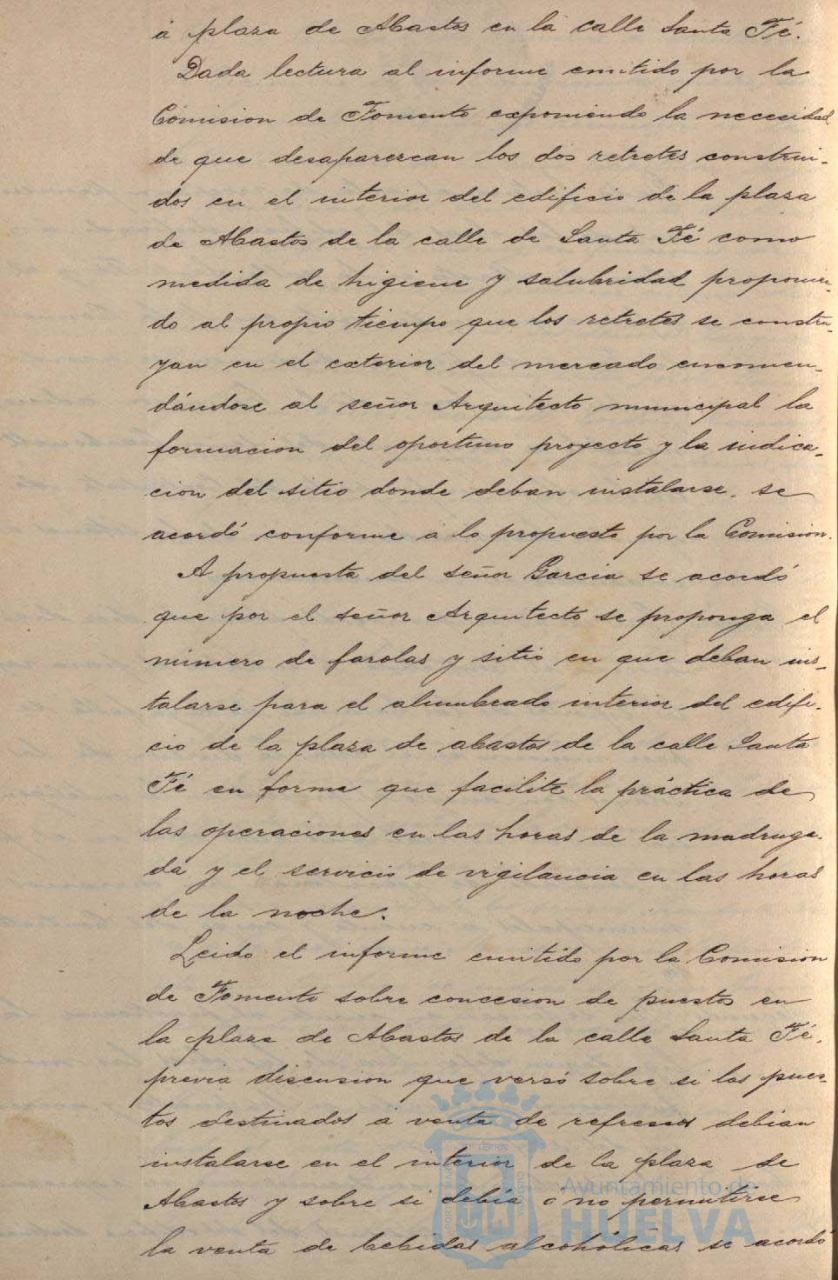 á plaza de Abastos en la calle Santa Fé.
Dada lectura al informe emitido por la
Comision de Fomento exponiendo la necesidad
de que desaparezcan los dos retretes construi-
dos en el interior del edificio de la plaza
de Abastos de la calle de Santa Fé como
medida de higiene y salubridad proponien-
do al propio tiempo que los retretes se constru-
yan en el exterior del mercado encomen-
dándose al señor Arquitecto municipal la
formacion del oportuno proyecto y la indica-
cion del sitio donde deban instalarse, se
acordó conforme á lo propuesto por la Comision.
A propuesta del señor Garcia se acordó
que por el señor Arquitecto se proponga el
número de farolas y sitio en que deban ins-
talarse para el alumbrado interior del edifi-
cio de la plaza de abastos de la calle Santa
Fé en forma que facilite la práctica de
las operaciones en las horas de la madruga-
da y el servicio de vigilancia en las horas
de la noche.
Leido el informe emitido por la Comision
de Fomento sobre concesion de puestos en
la plaza de Abastos de la calle Santa Fé,
previa discusion que versó sobre si los pues-
tos destinados á venta de refrescos debian
instalarse en el interior de la plaza de
Abastos y sobre si debía o no permitirse
la venta de bebidas alcoholicas se acordó
Ayuntamiento de
HUELVA